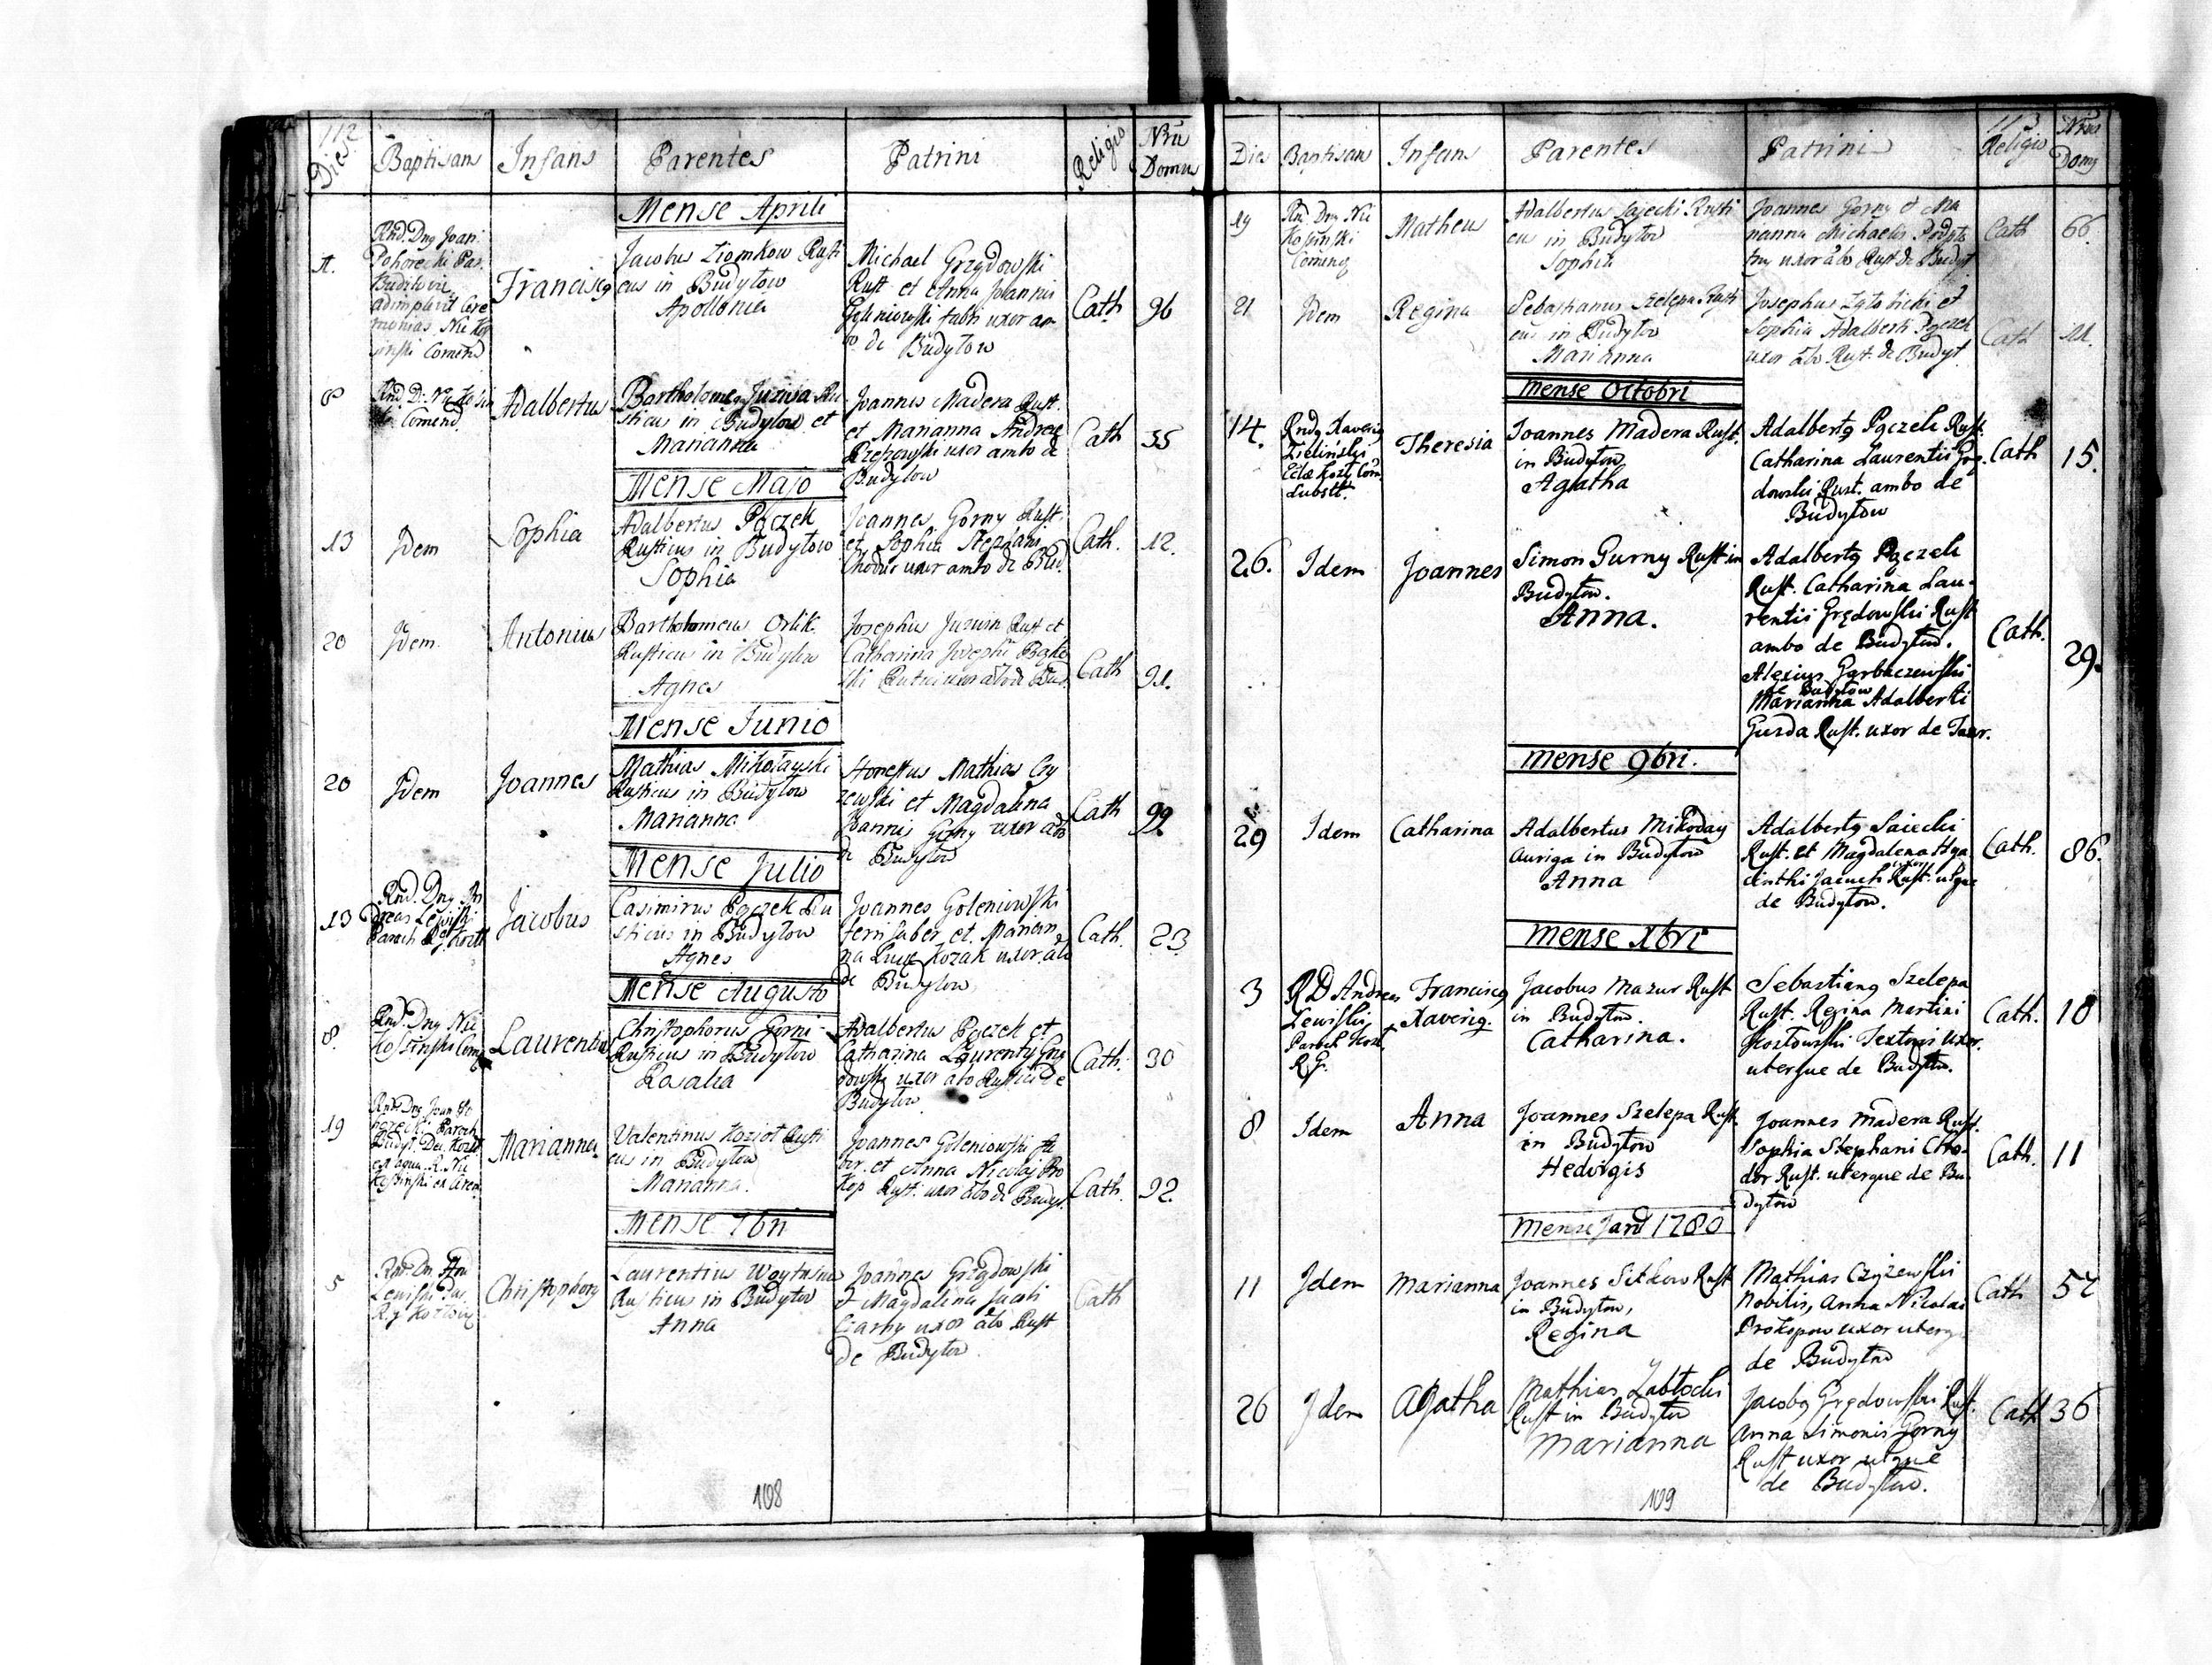 112
Dies Baptisans Infans Parentes Patrini Religio Nru Domu
Mense Aprili
Rnd. Dng Joan.
Pohorecki Par.
adimplevit Cere
monias Nic Ko
sinski Comend
Francisg
Jacobus Ziomkow Rusti
cus in Budyłow
Apollonia
Michael Grzędowski
Rust et Anna Joannis
Goleniowski fabri uxor am
bo de Budyłow
Cath 96
8 Rnd. D. Nic Kosin
ski Comend.
Adalbertus
Bartholomeg Juzwa Ru
sticus in Budyłow et
Marianna
Joannes Madera Rust.
et Marianna Andreæ
uxor ambo de
Budyłow
Cath 35
Mense Majo
13 Idem Sophia
Adalbertus Pączek
Rusticus in Budyłow
Sophia
Joannes Gorny Rust.
et Sophia Stephani
Chodor uxor ambo de Bud.
Cath. 12.
20 Idem Antonius
Bartholomeus Orlik
Rusticus in Budyłow
Agnes
Josephus Juzwin Rust et
Catharina Josephi
Cath 91.
Mense Junio
20 Idem Joannes
Mathias Mikołayski
Rusticus in Budyłow
Marianna
Honestus Mathias Czy
zewski et Magdalena
Joannis Gorny uxor abo
de Budyłow
Cath 99.
Mense Julio
13 Rnd. Dng An
dreas Lewiski
Paroch
Jacobus
Casimirus Pączek Ru
sticus in Budyłow
Agnes
Joannes Goleniowski
ferri faber et Marian
na Lucæ Kozak uxor abo
de Budyłow
Cath. 23
Mense Augusto
8. Rnd. Dng Nic
Kossinski Com
Laurentius
Christophorus Gorni
Rusticus in Budyłow
Rosalia
Adalbertus Pączek et
Catharina Laurenty Grzę
dowski uxor abo Rustici de
Budyłow
Cath. 30
19 Rnd Dng Joan Po
horecki Paroch
Budył. Dec. Kozł.
ex aqua. R. Nic
Kossinski ex Cerem
Marianna
Valentinus Kozioł Rusti
cus in Budyłow
Marianna.
Joannes Goleniowski fa
ber. et Anna Nicolaj Pro
kop Rust. uxor abo de Budył.
Cath. 92.
Mense 7bri
5 Rnd. Dn And
Lewiski Par.
Christophorg
Laurentius
Rusticus in Budyłow
Anna
Joannes Grzędowski
et Magdalena Jacobi
Czarny uxor abo Rust
de Budyłow
Cath
108
113
Die Baptisans Infans Parentes Patrini Religio Nrus Domg
19 Rnd Dng Nic
Kosinski
Comend
Matheus
Adalbertus Sajecki Rusti
cus in Budyłow
Sophia
Joannes Gorny et Ma
rianna Michaelis
uxor abo Rust de Budył
Cath 66.
21 Idem Regina
Sebastianus Szelepa Rusti
cus in Budyłow
Marianna
Josephus et
Sophia Adalberti Pączek
uxor abo Rust. de Budył
Cath
Mense Octobri
14. Rndg Xaverig
Zieliński
Theresia
Joannes Madera Rust.
in Budyłow
Agatha
Adalbertg Pączek Rust.
Catharina Laurentii Grzę-
dowski Rust. ambo de
Budyłow
Cath 15.
26. Idem Joannes
Simon Gurny Rust in
Budyłow.
Anna.
Adalbertg Pączek
Rust. Catharina Lau-
rentii Grzędowski Rust
ambo de Budyłow.
Alexius Garbaczewski
de Budyłow
Marianna Adalberti
Gurda Rust. uxor de Taur.
Cath. 29.
Mense 9bri.
29 Idem Catharina
Adalbertus Mikoday
Auriga in Budyłow
Anna
Adalbertg Saiecki
Rust. et Magdalena Hya
cinthi uxor Rust. utque
de Budyłow.
Cath. 86.
Mense Xbri
3 RD Andreas
Lewiski
Paroch Kozł.
R. G.
Franciscg
Xaverig.
Jacobus Mazur Rust
in Budyłow.
Catharina.
Sebastiang Szelepa
Rust. Regina Martini
Kozłowski Textoris uxor.
uterque de Budyłow.
Cath. 18
8 Idem Anna
Joannes Szelepa Rust
in Budyłow
Hedvigis
Joannes Madera Rust.
Sophia Stephani Cho-
dor Rust. uterque de Bu-
dyłow
Cath. 11
Mense Jario 1780
11 Idem Marianna
Joannes Sitkow Rust
in Budyłow,
Regina
Mathias Czyżewski
Nobilis, Anna Nicolai
Prokopow uxor uterq
de Budyłow
Cath 52
26 Idem Agatha
Mathias Zabłocki
Rust in Budyłow
Marianna
Jacobg Grzędowski Rust.
Anna Simonis Gorny
Rust uxor utque
de Budyłow.
Cath 36
109